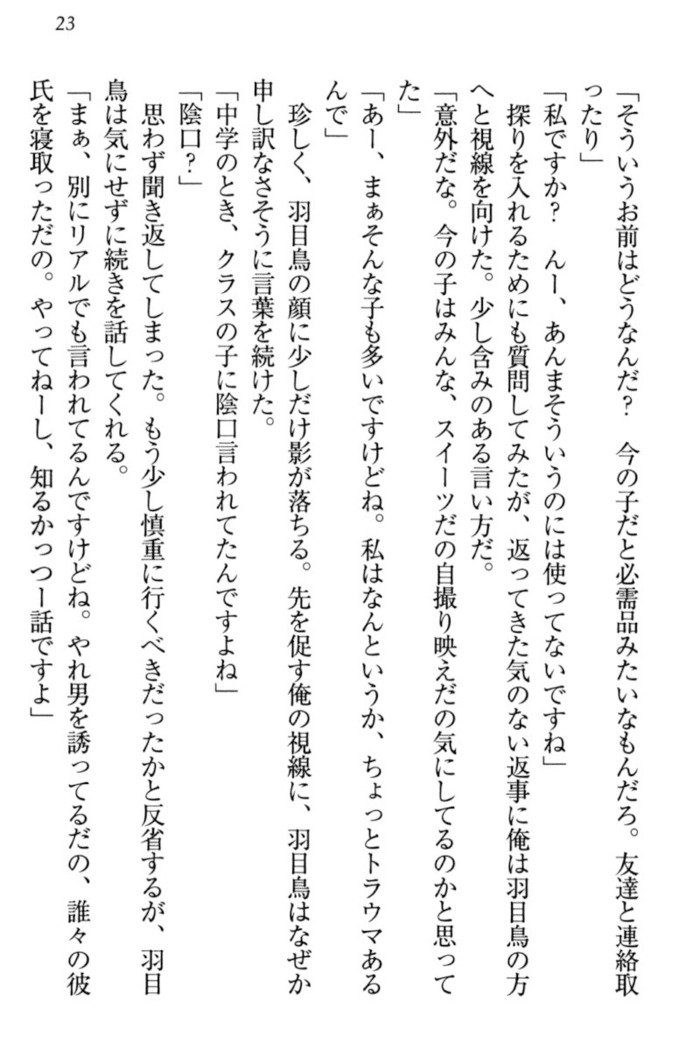 23
「そういうお前はどうなんだ？　今の子だと必需品みたいなもんだろ。友達と連絡取
ったり」
「私ですか？　んー、あんまそういうのには使ってないですね」
　探りを入れるためにも質問してみたが、返ってきた気のない返事に俺は羽目鳥の方
へと視線を向けた。少し含みのある言い方だ。
「意外だな。今の子はみんな、スイーツだの自撮り映えだの気にしてるのかと思って
た」
「あー、まぁそんな子も多いですけどね。私はなんというか、ちょっとトラウマある
んで」
　珍しく、羽目鳥の顔に少しだけ影が落ちる。先を促す俺の視線に、羽目鳥はなぜか
申し訳なさそうに言葉を続けた。
「中学のとき、クラスの子に陰口言われてたんですよね」
「陰口？」
　思わず聞き返してしまった。もう少し慎重に行くべきだったかと反省するが、羽目
鳥は気にせずに続きを話してくれる。
「まぁ、別にリアルでも言われてるんですけどね。やれ男を誘ってるだの、誰々の彼
氏を寝取っただの。やってねーし、知るかっつー話ですよ」